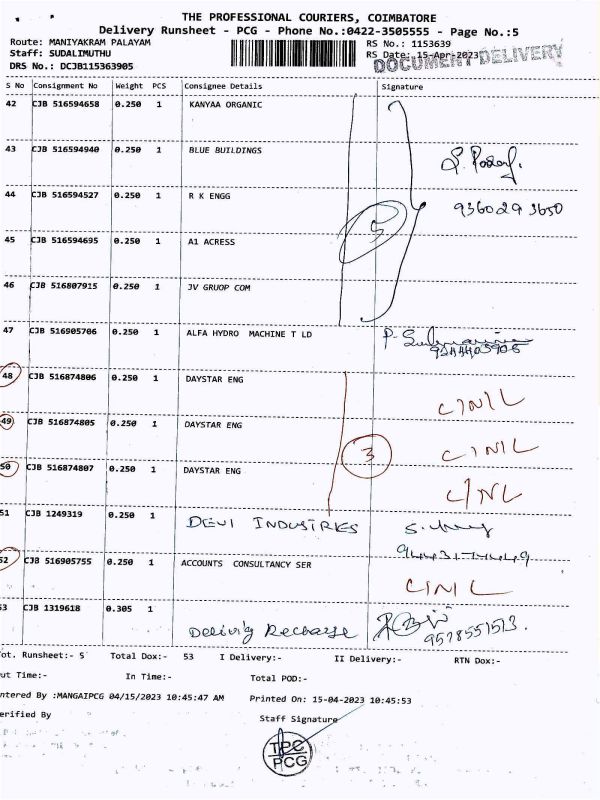 THE PROFESSIONAL COURIERS, COIMBATORE
Delivery Runsheet - PCG - Phone No.:0422-3505555 - Page No.:5
Route: MANIYAKRAM PALAYAM RS No.: 1153639
Staff: SUDALIMUTHU RS Date: 15-Apr-2023
DRS No.: DCJB115363905 DOCUMENT DELIVERY
S No Consignment No Weight PCS Consignee Details Signature
42 CJB 516594658 0.250 1 KANYAA ORGANIC
43 CJB 516594940 0.250 1 BLUE BUILDINGS
44 CJB 516594527 0.250 1 R K ENGG 9360293650
5
45 CJB 516594695 0.250 1 A1 ACRESS
46 CJB 516807915 0.250 1 JV GRUOP COM
47 CJB 516905706 0.250 1 ALFA HYDRO MACHINE T LD
48 CJB 516874806 0.250 1 DAYSTAR ENG CINIL
49 CJB 516874805 0.250 1 DAYSTAR ENG CINIL
3
50 CJB 516874807 0.250 1 DAYSTAR ENG CINL
51 CJB 1249319 0.250 1 DEVI INDUSTRIES
52 CJB 516905755 0.250 1 ACCOUNTS CONSULTANCY SER CINIL
53 CJB 1319618 0.305 1
9578551513.
ot. Runsheet:- 5 Total Dox:- 53 I Delivery:- II Delivery:- RTN Dox:-
ut Time:- In Time:- Total POD:-
ntered By :MANGAIPCG 04/15/2023 10:45:47 AM Printed On: 15-04-2023 10:45:53
erified By Staff Signature
TPC
PCG